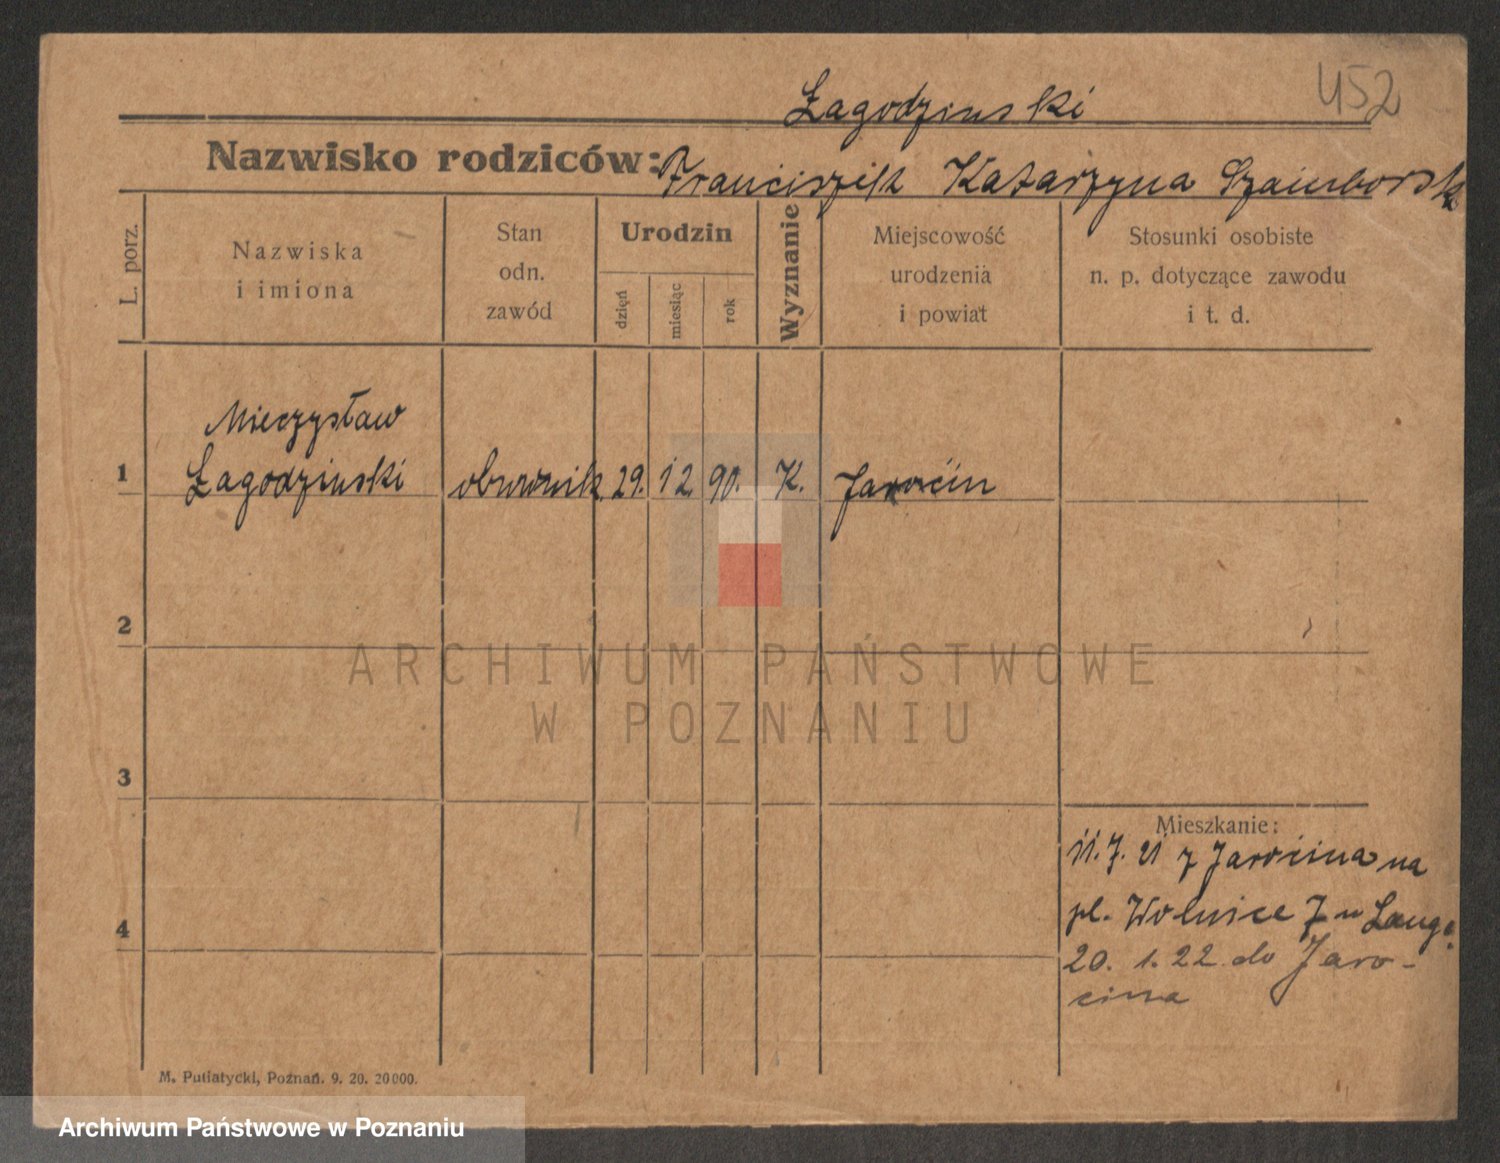 452
Łagodzinski
Nazwisko rodziców: Franciszek Katarzyna Szamborsk
L. porz.
Nazwiska
i imiona
Stan
odn.
zawód
Urodzin
dzień
miesiąc
rok
Wyznanie
Miejscowość
urodzenia
i powiat
Stosunki osobiste
n. p. dotyczące zawodu
i t. d.
Mieczysław
1 Łagodzinski obuwnik. 29. 12. 90. K. Jarocin
2
ARCHIWUM PAŃSTWOWE
W POZNANIU
3
Mieszkanie:
11. 7. 21 z Jarocina na
pl. Wolnice 7 u Lange.
4
20. 1. 22 do Jaro-
cina
M. Putiatycki, Poznań. 9. 20. 20000.
Archiwum Państwowe w Poznaniu